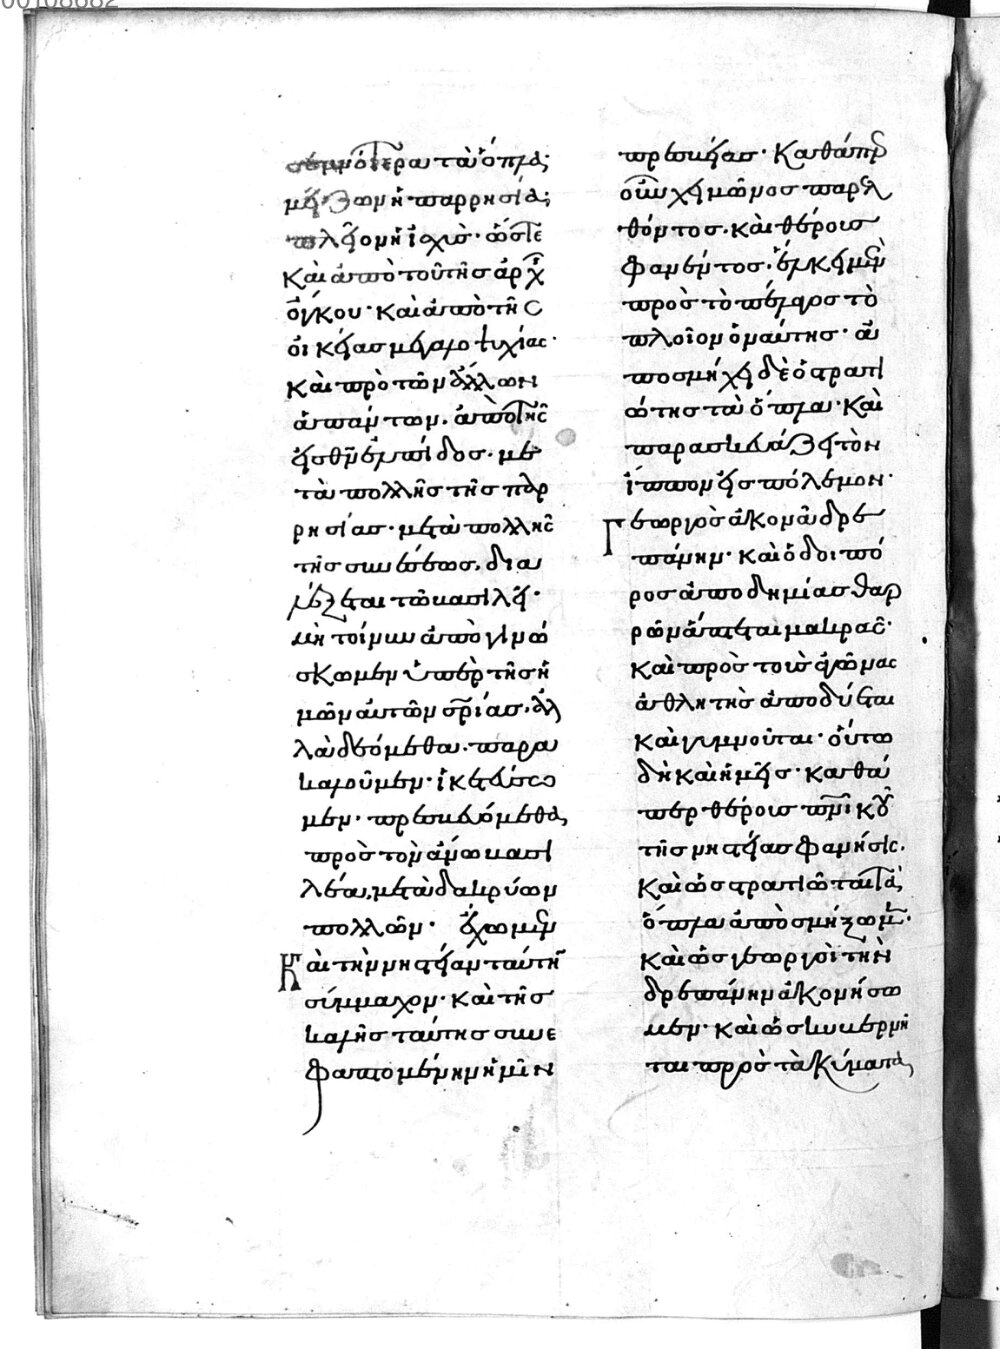 σεμνότερα τὰ ὅπλα;
μείζων ἡ παρρησία;
πλείων ἡ ἰσχύς· ὥστε
καὶ ἀπὸ τοῦ τῆς ἀρχῆς
ὄγκου· καὶ ἀπὸ τῆς
οἰκείας μεγαλοψυχίας·
καὶ πρὸ τῶν ἄλλων
ἁπάντων. ἀπὸ τῆς
εἰς θν ἐλπίδος. με
τὰ πολλῆς τῆς παρ
ρησίας· μετὰ πολλῆς
τῆς συνέσεως. δια
λέξεται τῷ βασιλεῖ·
μὴ τοίνυν ἀπογινώ
σκωμεν ὑπὲρ τῆς ἡ
μῶν αὐτῶν σριας. ἀλ
λὰ δεόμεθα. παρα
καλοῦμεν· ἱκετεύσω
μεν. πρεσβευόμεθα
πρὸς τὸν ἄνω βασι
λέα, μετὰ δακρύων
πολλῶν· ἔχωμεν
Καὶ τὴν νηστείαν ταύτην
σύμμαχον· καὶ τῆς
καλῆς ταύτης συνε
φαπτομένην ἡμῖν
πρεσβείας· Καθάπερ
οὖν χειμῶνος παρελ
θόντος. καὶ θέρους
φανέντος. ἕλκει μὲν
πρὸς τὸ πέλαγος τὸ
πλοῖον ὁ ναύτης· ἀ
ποσμήχει δὲ ὁ στρατι
ώτης τὰ ὅπλα· Καὶ
παρασκευάζει τὸν
ἵππον εἰς πόλεμον·
Γεωργὸς ἀκονᾷ δρε
πάνην· καὶ ὁδοιπό
ρος ἀποδημίας θαρ
ρῶν ἅπτεται μακρᾶς·
Καὶ πρὸς τοὺς ἀγῶνας
ἀθλητὴς ἀποδύεται
Καὶ γυμνοῦται· οὕτω
δὴ καὶ ἡμεῖς· καθά
περ θέρους πνικοῦ
τῆς νηστείας φανείσης.
Καὶ ὡς στρατιῶται τὰ
ὅπλα ἀποσμήξωμεν·
Καὶ ὡς γεωργοὶ τὴν
δρεπάνην ἀκονήσω
μεν· καὶ ὡς κυβερνῆ
ται πρὸς τὰ κύματα